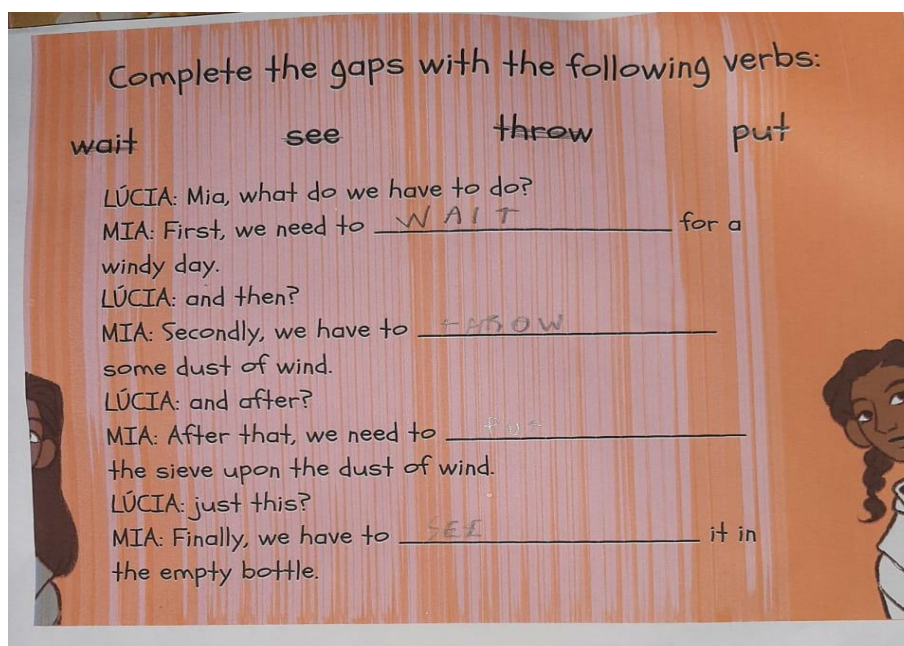 Complete the gaps with the following verbs:
wait see throw put
LÚCIA: Mia, what do we have to do?
MIA: First, we need to WAIT for a
windy day.
LÚCIA: and then?
MIA: Secondly, we have to THROW
some dust of wind.
LÚCIA: and after?
MIA: After that, we need to PUT
the sieve upon the dust of wind.
LÚCIA: just this?
MIA: Finally, we have to SEE it in
the empty bottle.